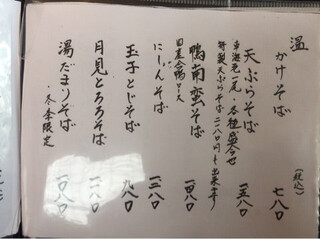 温
かけそば 七八〇
(税込)
天ぷらそば 一五八〇
車海老一尾・各種盛合せ
特製天ぷらそば二八〇円も出来ます
鴨南蛮そば 一四八〇
国産合鴨ロース
にしんそば 一三八〇
玉子とじそば 九八〇
月見とろろそば 一一八〇
湯だまりそば 一〇八〇
・冬季限定